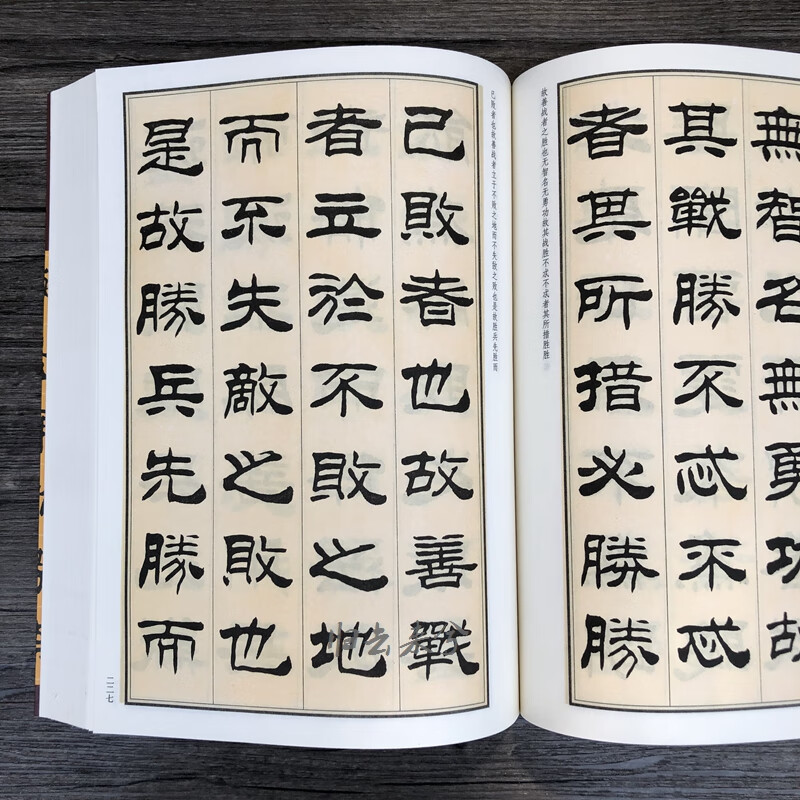 無智名無勇功故
其戰勝不忒不忒
者其所措必勝勝
故善战者之胜也无智名无勇功故其战胜不忒不忒者其所措胜胜
己败者也故善战者立于不败之地而不失敌之败也是故胜兵先胜而
己敗者也故善戰
者立於不敗之地
而不失敵之敗也
是故勝兵先勝而
二二七